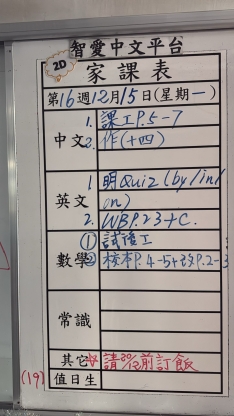 智愛中文平台
2D
家課表
第16週12月15日(星期一)
中文
1. 課工P.5-7
2. 作(十四)
英文
1 明Quiz (by/in/
on)
2. WB P.23+C.
數學
① 試後工
② 校本P.4-5+改P.2-3
常識
其它
請20/12前訂飯
(19)
值日生